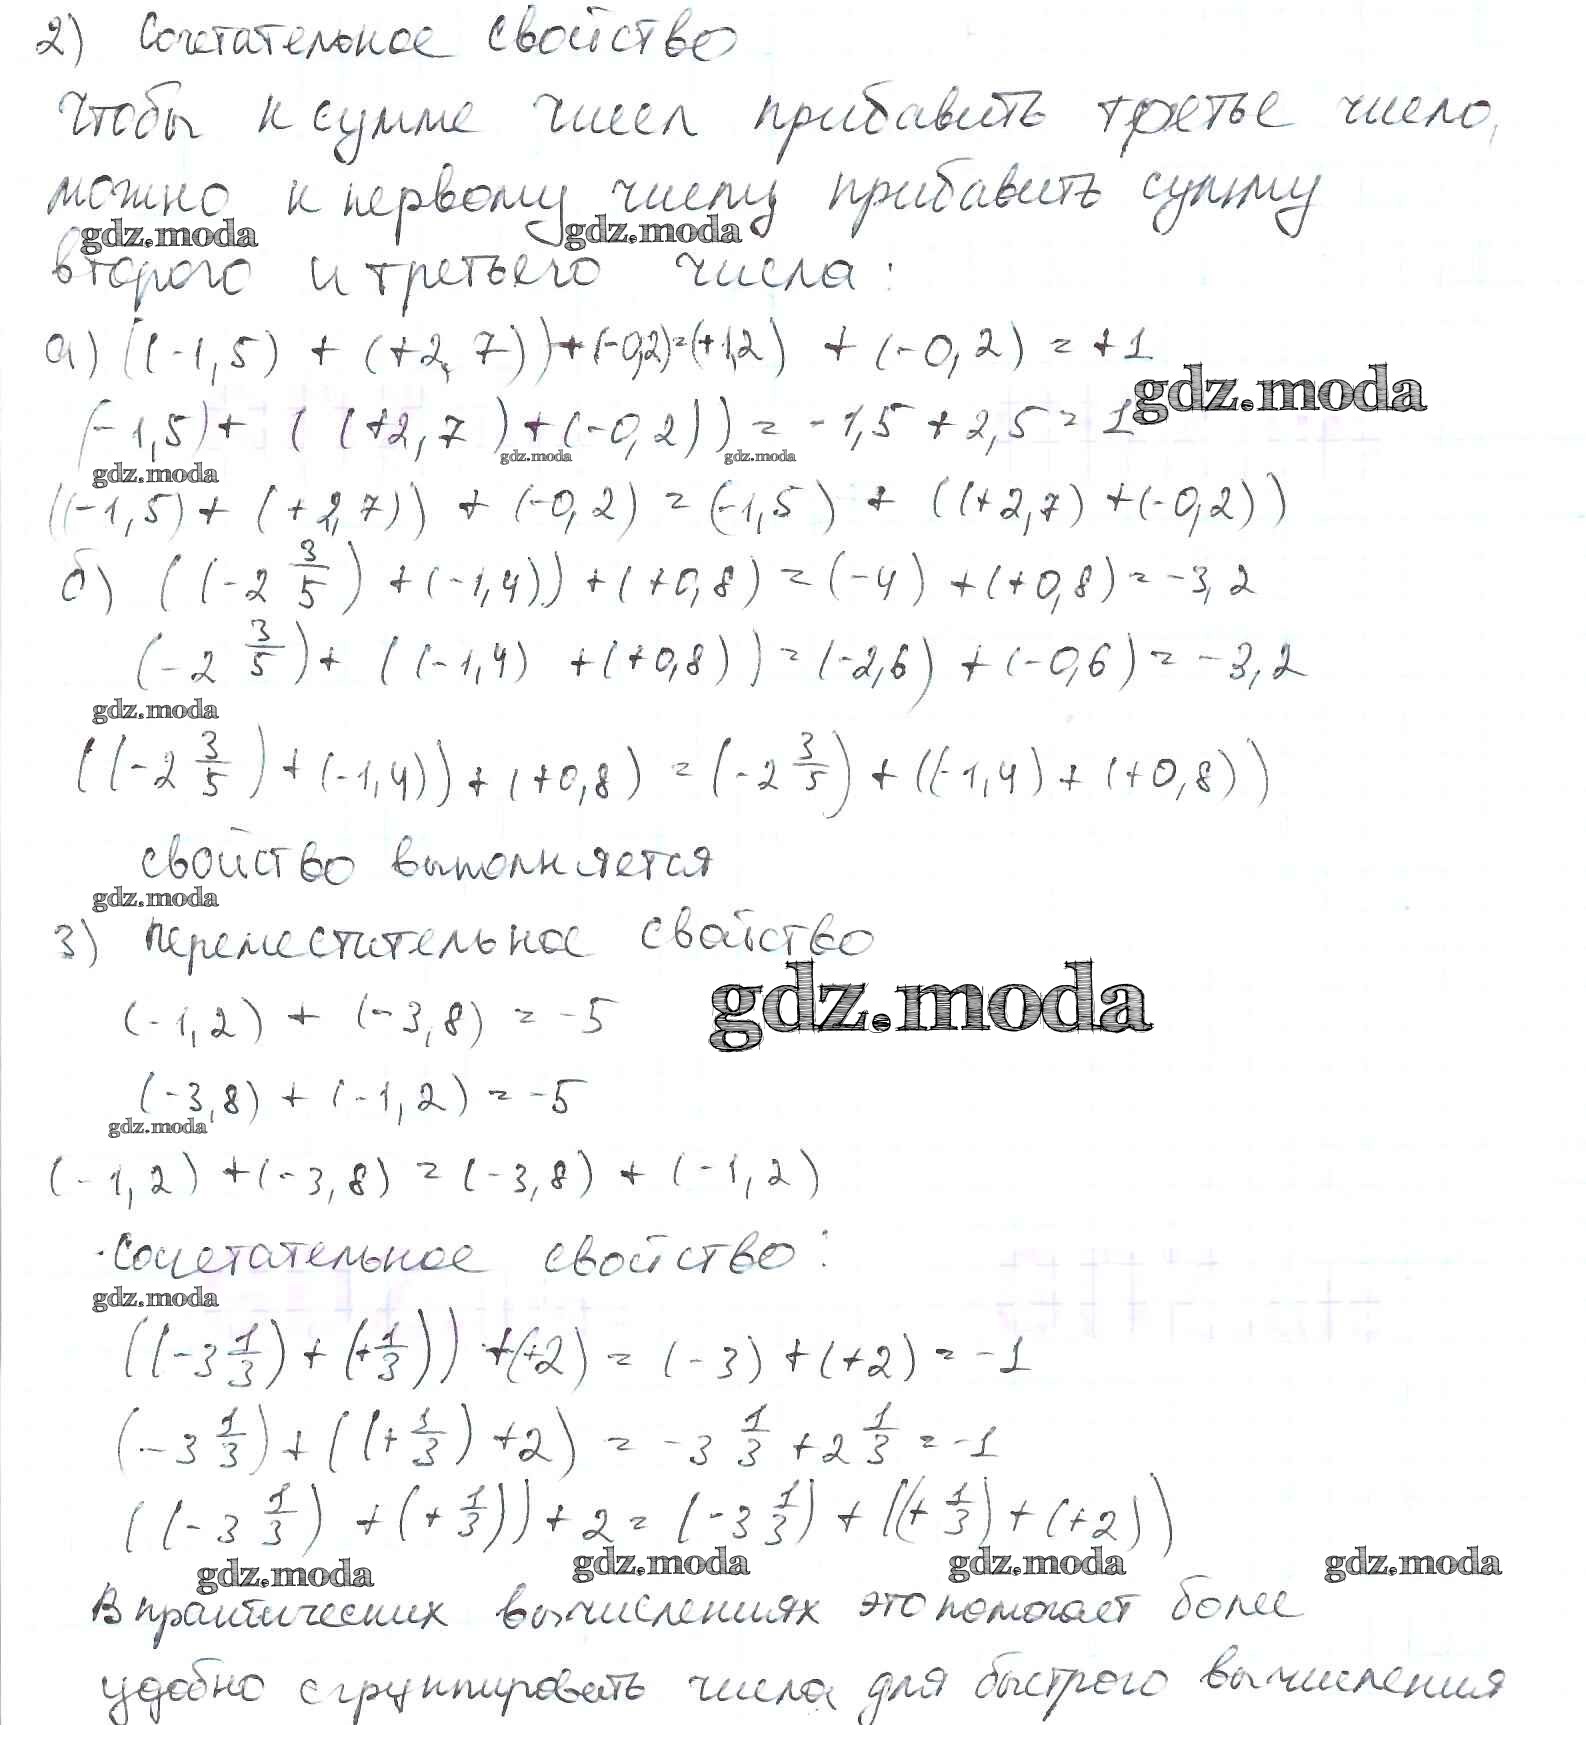 2) Сочетательное свойство
Чтобы к сумме чисел прибавить третье число,
можно к первому числу прибавить сумму
gdz.moda gdz.moda
второго и третьего числа:
а) ((-1,5) + (+2,7)) + (-0,2) = (+1,2) + (-0,2) = +1
gdz.moda
(-1,5) + ((+2,7) + (-0,2)) = -1,5 + 2,5 = 1
gdz.moda gdz.moda gdz.moda
((-1,5) + (+2,7)) + (-0,2) = (-1,5) + ((+2,7) + (-0,2))
б) ((-2 3/5) + (-1,4)) + (+0,8) = (-4) + (+0,8) = -3,2
(-2 3/5) + ((-1,4) + (+0,8)) = (-2,6) + (-0,6) = -3,2
gdz.moda
((-2 3/5) + (-1,4)) + (+0,8) = (-2 3/5) + ((-1,4) + (+0,8))
свойство выполняется
gdz.moda
3) Переместительное свойство
gdz.moda
(-1,2) + (-3,8) = -5
(-3,8) + (-1,2) = -5
gdz.moda
(-1,2) + (-3,8) = (-3,8) + (-1,2)
Сочетательное свойство:
gdz.moda
((-3 1/3) + (+1/3)) + (+2) = (-3) + (+2) = -1
(-3 1/3) + ((+1/3) + 2) = -3 1/3 + 2 1/3 = -1
((-3 1/3) + (+1/3)) + 2 = (-3 1/3) + ((+1/3) + (+2))
gdz.moda gdz.moda gdz.moda gdz.moda
В практических вычислениях это помогает более
удобно сгруппировать числа для быстрого вычисления